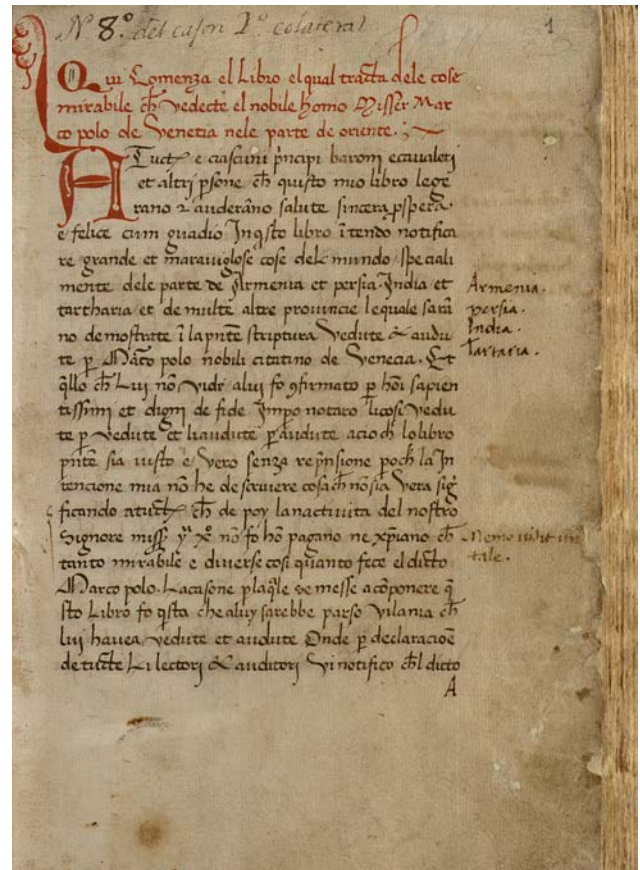 Nº 8.º del cason 1º colateral
1
Qui Comenza el Libro el qual tracta dele cose
mirabile ch̄ vedecte el nobile homo Misser Mar
co polo de Venetia nele parte de oriente.
A Tuct e ciascuni p̄ncipi baroni e cavaleri
et altri p̄sone ch̄ quisto mio libro lege
rano & auderāno salute sincera p̄spera.
e felice cum guadio Jn q̄sto libro ītendo notifica
re grande et maravigliose cose del mundo speciali
mente dele parte de Armenia et persia. India et
tartharia et de multe altre provincie le quale sarā
no demostrate ī la pn̄te scriptura Vedute & audu
te p Marco polo nobili citatino de Venecia. Et
q̄llo ch̄ Lui nō vidi a lui fo ꝯfirmato p hoi sapien
tissimi et digni de fide Jmpo notaro li cosi vedu
te p vedute et li audute p audute acio ch̄ lo libro
pn̄te sia iusto e vero senza rep̄nsione poch̄ la In
tencione mia nō he de scrivere cosa ch̄ nō sia vera sig
ficando a tuct ch̄ de poy la nactivita del nostro
Signore miss yu xo nō fo hō pagano ne xp̄iano ch̄
tanto mirabile e diverse cosi quanto fece el dicto
Marco polo. La casone p la q̄le se messe a cōponere q̄
sto Libro fo q̄sta che a luy sarebbe parso vilania ch̄
lui havea vedute et audute Onde p declaracioē
de tucte Li lectori & auditori Vi notifico ch̄l dicto
A
Armenia.
persia.
India.
Tartaria.
Nemo vidit un
tale.